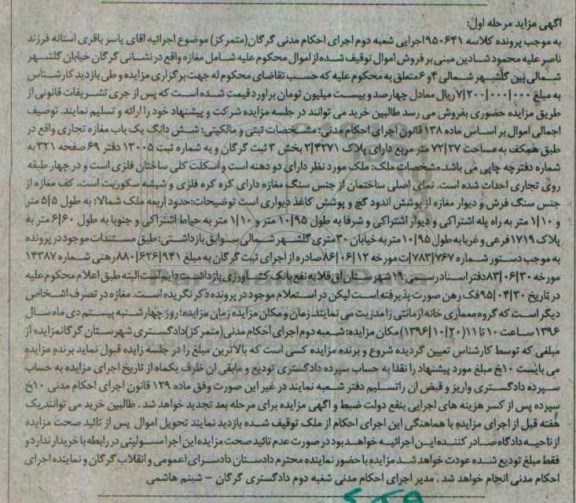 آگهی مزاید مرحله اول:
به موجب پرونده کلاسه ۹۵۰۶۴۱ اجرایی شعبه دوم اجرای احکام مدنی گرگان(متمرکز) موضوع اجرائیه آقای یاسر باقری استانه فرزند
ناصر علیه محمود شنادین مبنی بر فروش اموال توقیف شده از اموال محکوم علیه شامل مغازه واقع در نشانی گرگان خیابان گلشهر
شمالی بین گلشهر شمالی ۴و۶ متعلق به محکوم علیه که حسب تقاضای محکوم له جهت برگزاری مزایده و طی بازدید کارشناس
به مبلغ ۷/۲۰۰/۰۰۰/۰۰۰ ریال معادل چهارصد و بیست میلیون تومان برآورد قیمت شده است که پس از جری تشریفات قانونی از
طریق مزایده حضوری بفروش می رسد طالبین خرید می توانند در جلسه مزایده شرکت و پیشنهاد خود را ارائه و تسلیم نمایند. توصیف
اجمالی اموال بر اساس ماده ۱۳۸ قانون اجرای احکام مدنی: مشخصات ثبتی و مالکیتی: شش دانگ یک باب مغازه تجاری واقع در
طبق همکف به مساحت ۷۲/۲۷ متر مربع دارای پلاک ۲/۴۲۷۱ بخش ۳ ثبت گرگان و به شماره ثبت ۱۳۰۰۵ دفتر ۶۹ صفحه ۳۲۱ به
شماره دفترچه چاپی می باشد.مشخصات ملک: ملک مورد نظر دارای دو دهنه است و اسکلت کلی ساختان فلزی است و در چهار طبقه
روی تجاری احداث شده است. نمای اصلی ساختمن از جنس سنگ مغازه دارای کره کره فلزی و شیشه سکوریت است. کف مغازه از
جنس سنگ فرش و دیوار مغازه از پوشش اندود گچ و پوشش کاغذ دیواری است توضیحات:حدود اربعه ملک شمالا: به طول ۵/۵ متر
و ۱/۱۰ متر به راه پله اشتراکی و دیوار اشتراکی و شرقا به طول ۱۰/۹۵ متر و ۱/۱۰ متر به حیاط اشتراکی و جنوبا به طول ۶/۶۰ متر به
پلاک ۱۷۱۹ فرعی و غربا به طول ۱۰/۹۵ متر به خیابان ۳۰ متری گلشهر شمالی سوابق بازداشتی:طبق مستندات موجود در پرونده
به موجب دستور شماره ۷۸۳/۷۶۷ت مورخه ۸۶/۰۶/۱۲ صادره از اجرای ثبت گرگان به مبلغ ۸۸۰/۶۲۶/۹۴۱ رهنی شماره ۱۴۳۸۷
مورخه ۸۳/۰۶/۳۰ دفتر اسناد رسمی ۱۹ شهرستان اق قلا به نفع بانک کشاورزی بازداشت دایم است البته طبق اعلام محکوم علیه
در تاریخ ۹۵/۰۴/۳۰ فک رهن صورت پذیرفته است لیکن در استعلام موجود در پرونده ذکر نگریده است. مغازه در تصرف اشخاص
دیگر است که گروه معماری خانه ازمانتی را مدریت می نمایند. زمان و مکان مزایده زمان مزایده: روز چهارشنبه بیستم دی ماه سال
۱۳۹۶ ساعت ۱۰ تا ۱۱(۱۳۹۶/۱۰/۲۰) مکان مزایده: شعبه دوم اجرای احکام مدنی(متمرکز)دادگستری شهرستان گرگانمزایده از
مبلغی که توسط کارشناس تعیین گردیده شروع و برنده مزایده کسی است که بالاترین مبلغ را در جلسه زایده قبول نماید برنده مزایده
می بایست ۱۰خ مبلغ مورد پیشنهاد را نقدا به حساب سپرده دادگستری تودیع و مابقی ان ظرف یکماه از تاریخ اجرای مزایده به حساب
سپرده دادگستری واریز و قبض ان راتسلیم دفتر شعبه نمایند در غیر این صورت وفق ماده ۱۲۹ قانون اجرای احکام مدنی ۱۰خ
سپرده پس از کسر هزینه های اجرایی بنفع دولت ضبط و آگهی مزایده برای مرحله بعد تجدید خواهد شد . طالبین خرید می توانندیک
هفته قبل از اجرای مزایده با هماهنگی این اجرای احکام از ملک توقیف شده بازدید نمایند تحویل اموال پس از تائید صحت مزایده
از ناحیه دادگاه صادر کننده این اجرائیه خواهد بود در صورت عدم تائید صحت مزایده این اجرا مسولیتی در رابطه با خریدار ندارد و
فقط مبلغ تودیع شده عودت خواهد شد مزایده با حضور نماینده محترم دادستان دادسرای عمومی و انقلاب گرگان و نماینده اجرای
احکام مدنی انجام خواهد شد . مدیر اجرای احکام مدنی شعبه دوم دادگستری گرگان – شبنم هاشمی